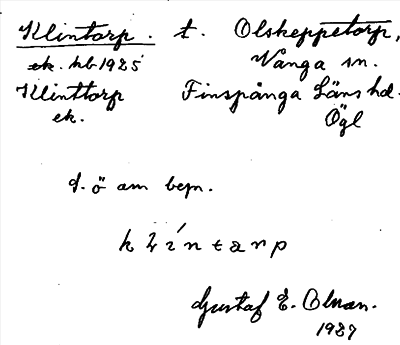 Klintorp. t. Olskeppetorp,
ek. kb 1925 Vånga sn.
Klinttorp Finspånga Läns hd.
ek. Ögl
d. ö am bejn.
Gustaf E.
1927